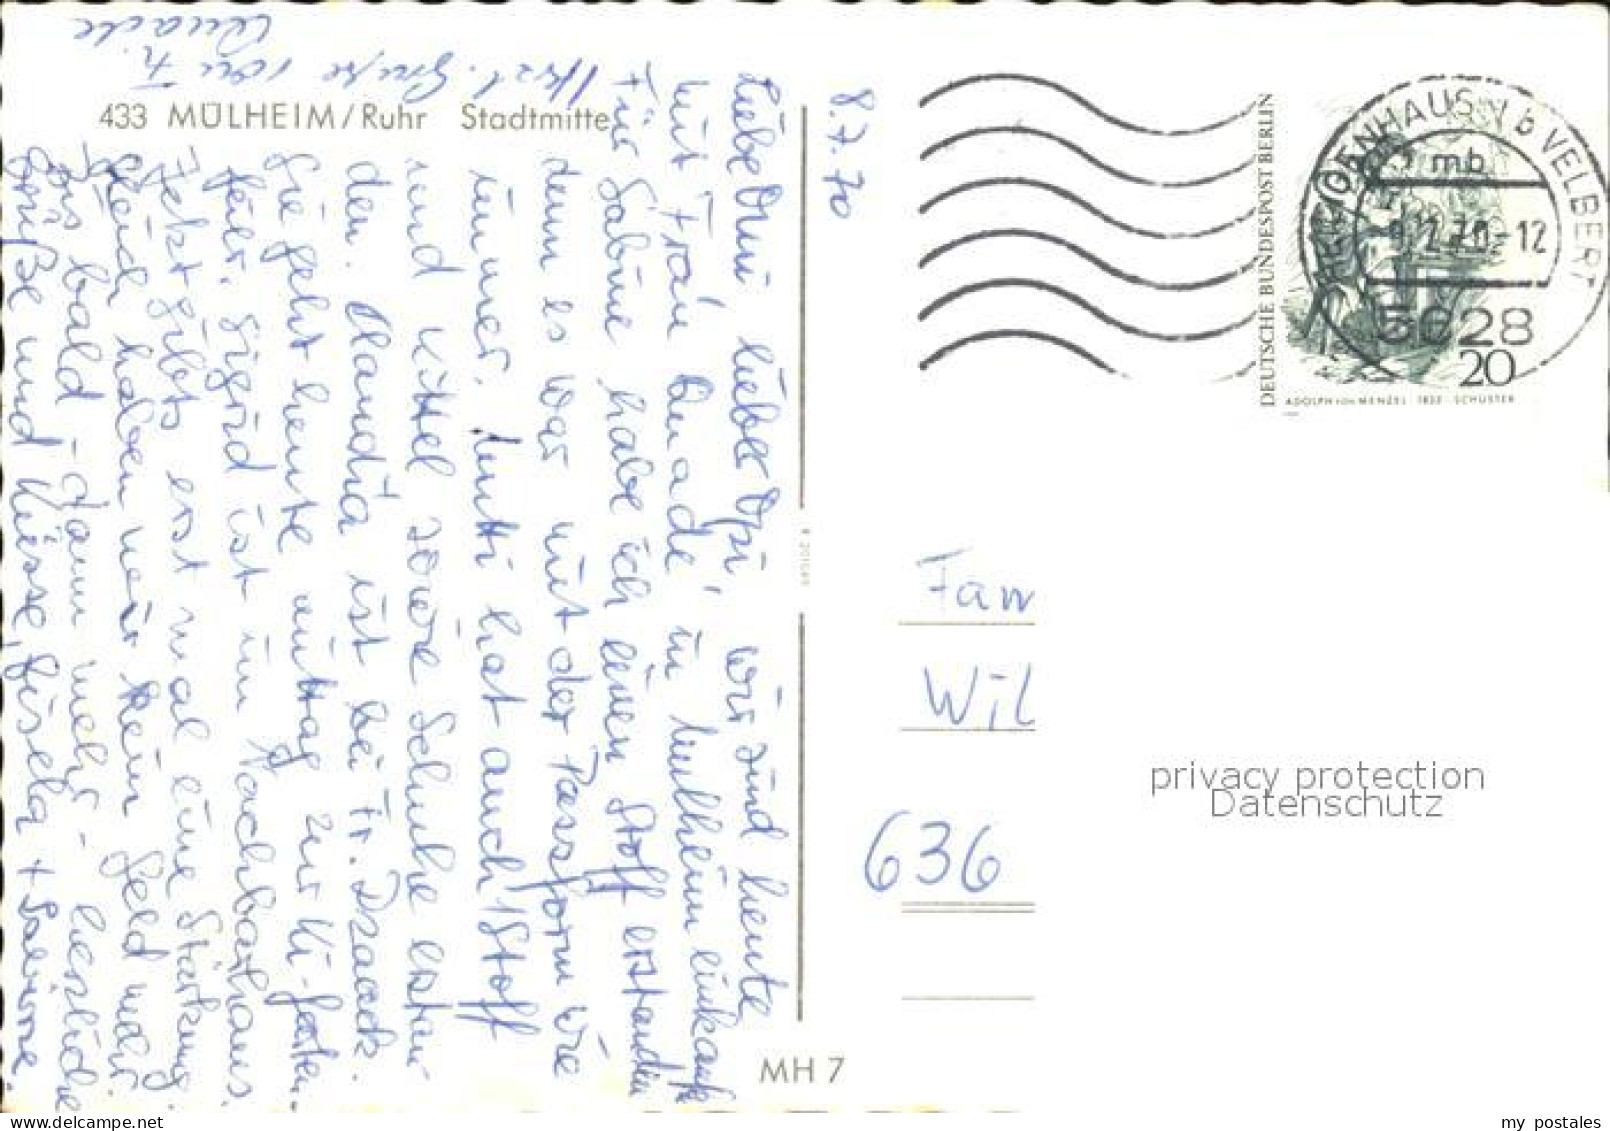 433 MÜLHEIM/Ruhr Stadtmitte
8.7.70
Liebe Omi, lieber Opi, wir sind heute
mit Frau Quade in Mülheim einkaufen
Für Sabine habe ich einen Stoff erstanden
denn es war mit der Passform wie
immer. Mutti hat auch 1 Stoff
und Kittel sowie Schuhe erstan
den. Claudia ist bei Fr. Dzaack.
Sie geht heute mittag zur Ki-garten-
feier. Sigrid ist im Nachbarhaus.
Jetzt gibts erst mal eine Stärkung.
Gleich haben wir kein Geld mehr
bis bald - dann mehr - herzliche
Grüße und Küsse, Gisela + Sabine.
Herzl. Grüße von Fr.
Quade
DEUTSCHE BUNDESPOST BERLIN
20
ADOLPH VON MENZEL · 1832 · SCHUSTER
HEILIGENHAUS b VELBERT
mb
-12
5628
Fam
Wil
636
privacy protection
Datenschutz
MH 7
my postales